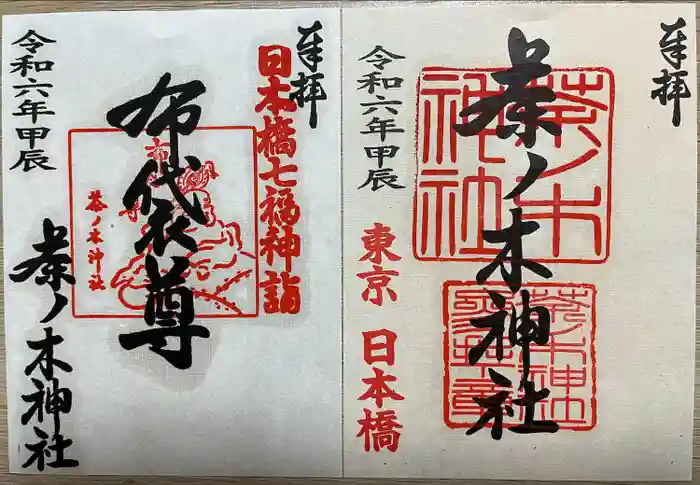 奉拝
茶ノ木神社
茶ノ木神社
東京 日本橋
令和六年甲辰
奉拝
日本橋七福神詣
布袋尊
茶ノ木神社
茶ノ木神社
令和六年甲辰